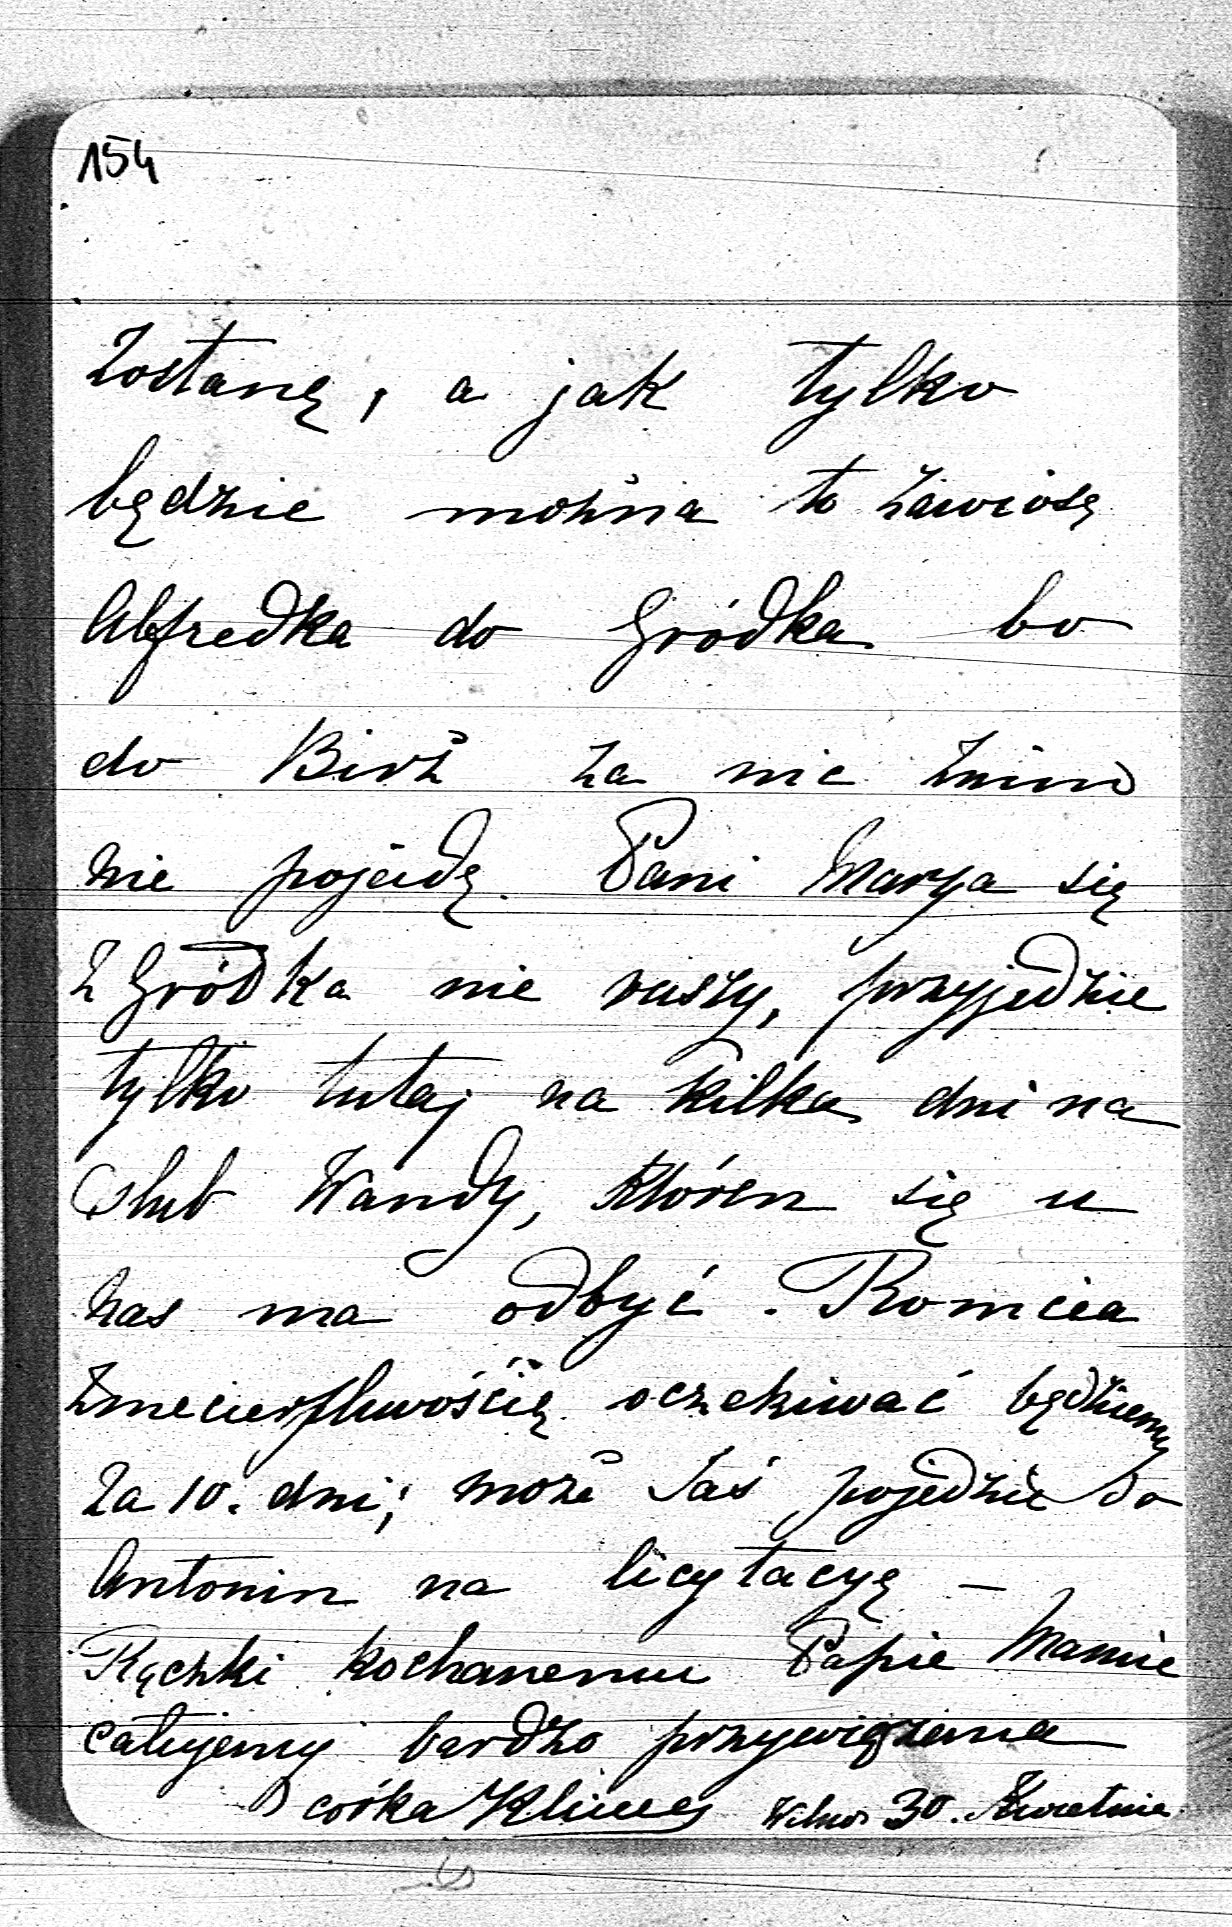 154
zostanę, a jak tylko
będzie można to zawiosę
Alfredka do Gródka bo
do Birż za nic znim
nie pojeidę. Pani Marya się
z Gródka nie ruszy, przyjedzie
tylko tutaj na kilka dni na
Slub Wandy, któren się u
nas ma odbyć. Romcia
zniecierpliwością oczekiwać będziemy
za 10. dni; może Jaś pojedzie do
Antonin na licytacyę —
Rączki kochanemu Papie Mamie
całujemy bardzo przywiązana
córka Klimcia Wilno 30. Kwietnia